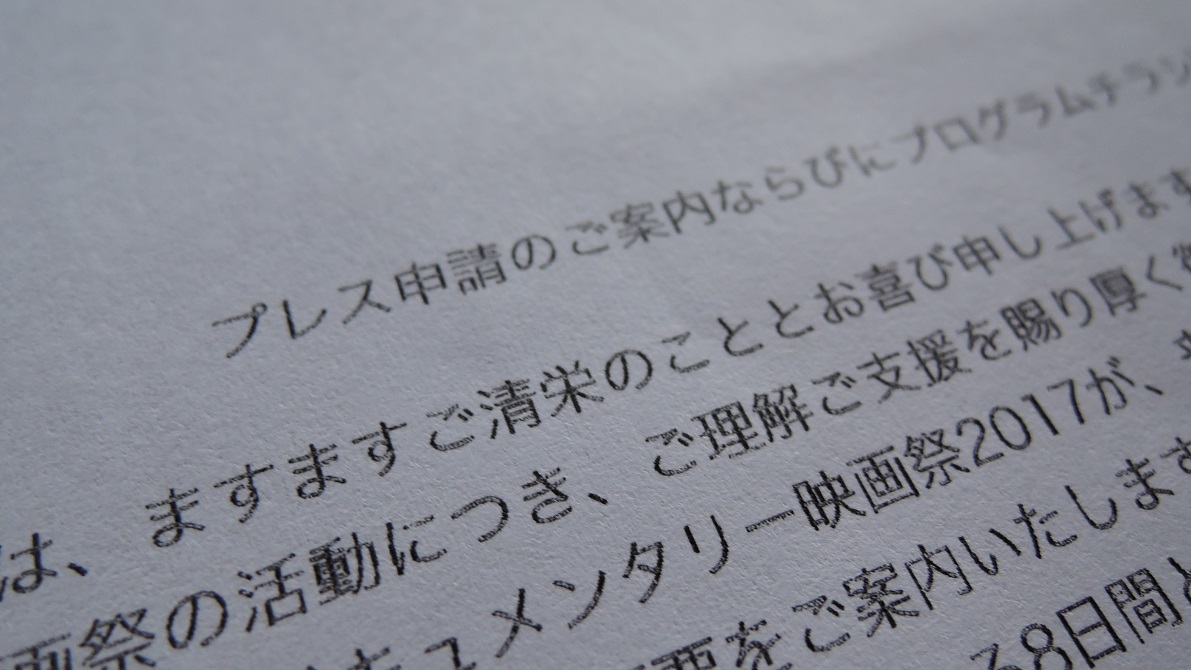 プレス申請のご案内ならびにプログラムチラシ
は、ますますご清栄のこととお喜び申し上げます
画祭の活動につき、ご理解ご支援を賜り厚く御
キュメンタリー映画祭2017が、
要をご案内いたします
る8日間と